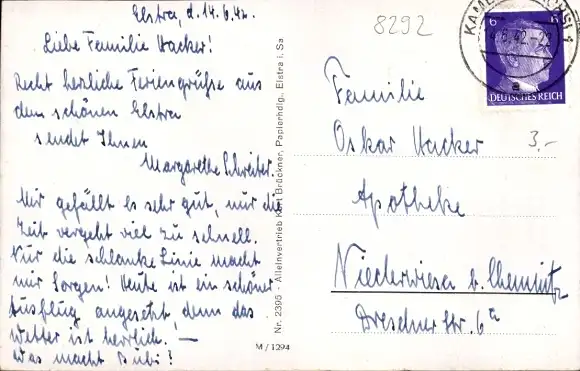 Elstra, d. 14.6.42.
Liebe Familie Hacker!
Recht herzliche Feriengrüße aus
dem schönen Elstra
sendet Ihnen
Margarethe Schreiter.
Mir gefällt es sehr gut, nur die
Zeit vergeht viel zu schnell.
Nur die schlanke Linie macht
mir Sorgen! Heute ist ein schöner
Ausflug angesetzt, denn das
Wetter ist herrlich. —
Was macht Bubi?
Nr. 2395 - Alleinvertrieb Karl Brückner, Papierhdlg., Elstra i. Sa
M / 1294
8292
KAMENZ
6 6
DEUTSCHES REICH
3.-
Familie
Oskar Hacker
Apotheke
Niederwiesa b. Chemnitz
Dresdner Str. 6a